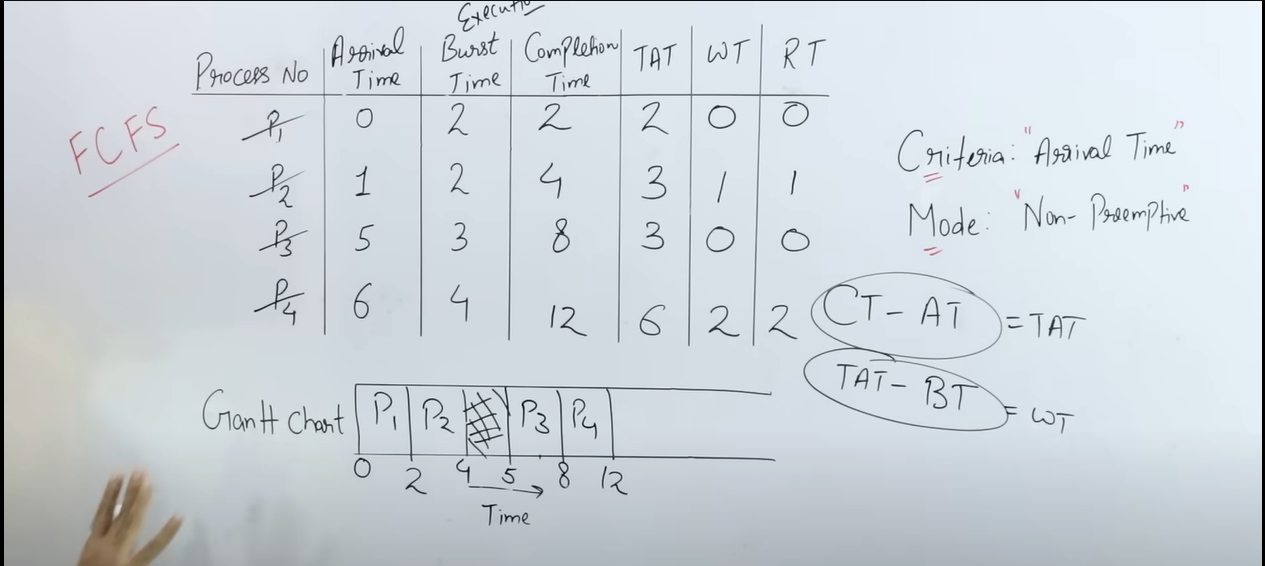 Execution
Process No Arrival Time Burst Time Completion Time TAT WT RT
P1 0 2 2 2 0 0
P2 1 2 4 3 1 1
P3 5 3 8 3 0 0
P4 6 4 12 6 2 2
FCFS
Criteria: "Arrival Time"
Mode: "Non-Preemptive"
CT - AT = TAT
TAT - BT = WT
Gantt chart P1 P2 P3 P4
0 2 4 5 8 12
Time